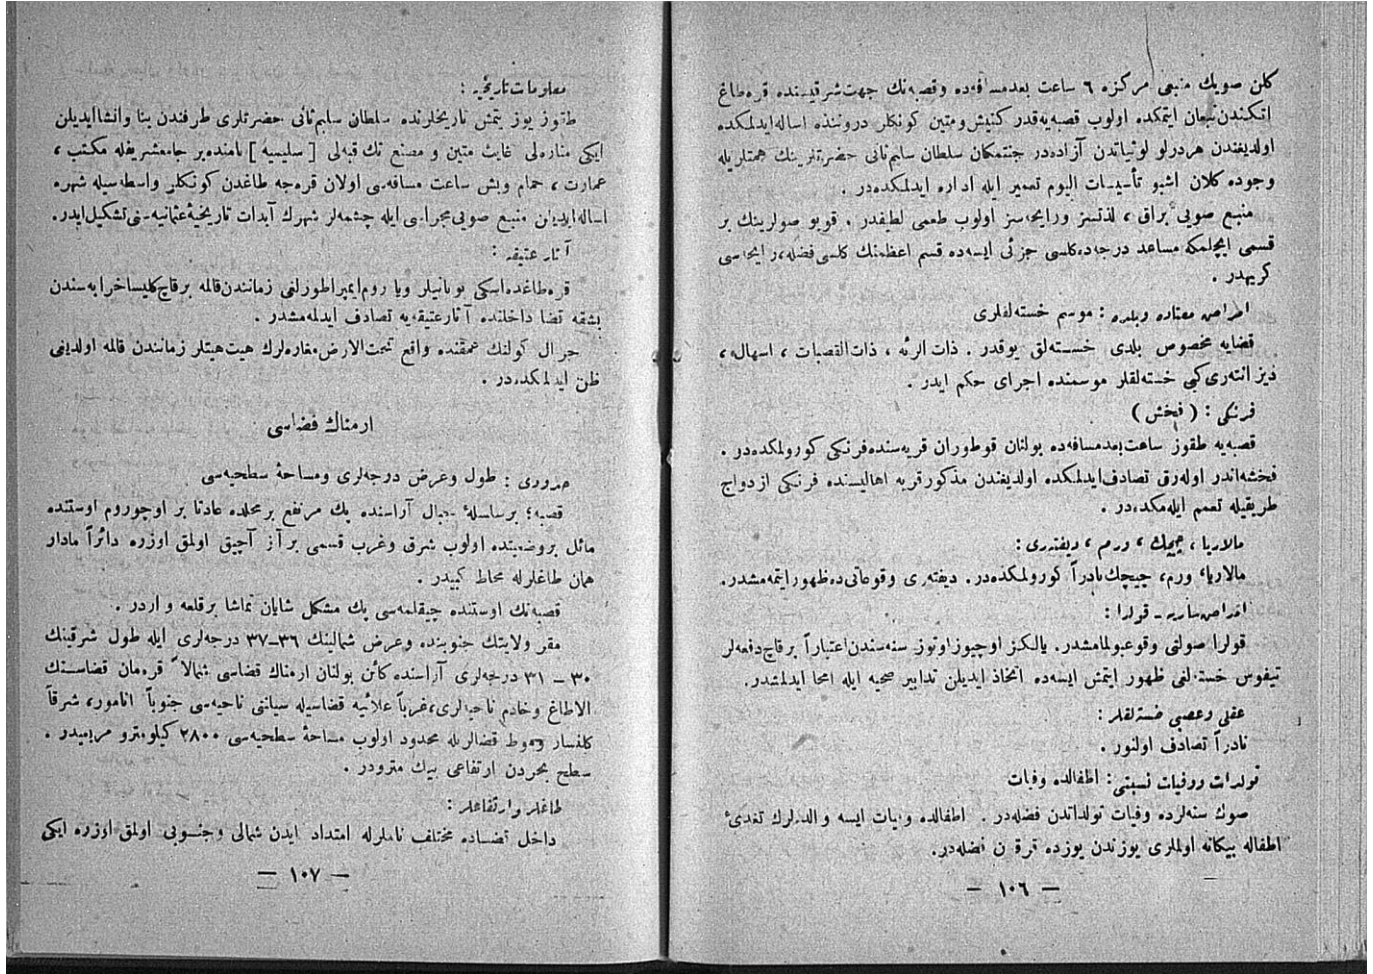 كلن صويك منبعی مركزه ٦ ساعت بعد مسافه‌ده و قصبه‌نك جهت شرقیسنده قره‌طاغ
اتكندن نبعان ایتمكده اولوب قصبه‌یه قدر كنیش و متین كونكلر دروننده اساله ایدلمكده
اولدیغندن هر درلو لوثیاتدن آزاده‌در جنتمكان سلطان سلیم ثانی حضرتلرینك همتلریله
وجوده كلان اشبو تأسیسات الیوم تعمیر ایله اداره ایدلمكده‌در .
منبع صویی براق ، لذتسز ورایحه‌سز اولوب طعمی لطیفدر . قویو صولرینك بر
قسمی ایچلمكه مساعد درجه‌ده كلسی جزئی ایسه‌ده قسم اعظمنك كلسی فضله ، رایحه‌سی
كریهدر .
امراض معتاده وبلده : موسم خسته‌لقلری
قضایه مخصوص بلدی خسته‌لق یوقدر . ذات الرئه ، ذات القصبات ، اسهاله ،
دیزانته‌ری كبی خسته‌لقلر موسمنده اجرای حكم ایدر .
فرنكی : ( فحش )
قصبه‌یه طقوز ساعت بعد مسافه‌ده بولنان قوطوران قریه‌سنده فرنكی كورولمكده‌در .
فحشه اندر اوله‌رق تصادف ایدلمكده اولدیغندن مذكور قریه اهالیسنده فرنكی ازدواج
طریقیله تعمم ایله‌مكده‌در .
مالاریا ، چیچك ، ورم ، دیفته‌ری :
مالاریا ، ورم ، چیچك نادراً كورولمكده‌در . دیفته‌ری وقوعاتی‌ده ظهور ایتمه‌مشدر .
امراض ساریه ــ قولرا :
قولرا صولتی وقوعبولمامشدر . یالكز اوچیوز اوتوز سنه‌سندن اعتباراً برقاچ دفعه‌لر
تیفوس خسته‌لغی ظهور ایتمش ایسه‌ده اتخاذ ایدیلن تدابیر صحیه ایله امحا ایدلمشدر .
عقلی وعصبی خسته‌لقلر :
نادراً تصادف اولنور .
تولدات ووفیات نسبتی : اطفالده وفیات
صوك سنه‌لرده وفیات تولداتدن فضله‌در . اطفالده وفیات ایسه والدلرك تغدیهٔ
اطفاله بیكانه اولملری یوزندن یوزده قرقدن فضله‌در .
— ١٠٦ —
معلومات تاریخیه :
طقوز یوز یتمش تاریخلرنده سلطان سلیم ثانی حضرتلری طرفندن بنا وانشا ایدیلن
ایكی مناره‌لی غایت متین و مصنع تك قبه‌لی [ سلیمیه ] نامنده بر جامعشریفله مكتب ،
عمارت ، حمام وبش ساعت مسافه‌سی اولان قره‌جه طاغدن كونكلر واسطه‌سیله شهره
اساله ایدیلن منبع صویی مجراسی ایله چشمه‌لر شهرك آبدات تاریخیهٔ عثمانیه‌سنی تشكیل ایدر .
آثار عتیقه :
قره‌طاغده اسكی یونانیلر ویا روم ایمپراطورلغی زمانندن قالمه برقاچ كلیسا خرابه‌سندن
بشقه قضا داخلنده آثار عتیقه‌یه تصادف ایدلمه‌مشدر .
كولنك عمقنده واقع تحت الارض مغاره‌لرك هیت‌هیتلر زمانندن قالمه اولدیغی
ظن ایدلمكده‌در .
ارمناك قضاسی
حدودی : طول وعرض درجه‌لری ومساحهٔ سطحیه‌سی
قصبه ؛ بر سلسلهٔ جبال آراسنده پك مرتفع بر محلده عادتا بر اوچوروم اوستنده
مائل بر وضعیتده اولوب شرق وغرب قسمی بر آز آچیق اولمق اوزره دائراً مادار
همان طاغلرله محاط كبیدر .
قصبه‌نك اوستنده چیقلمه‌سی پك مشكل شایان تماشا بر قلعه واردر .
مقر ولایتك جنوبنده وعرض شمالینك ٣٦ــ٣٧ درجه‌لری ایله طول شرقینك
٣٠ ــ ٣١ درجه‌لری آراسنده كائن بولنان ارمناك قضاسی شمالاً قره‌مان قضاسنك
الاطاغ وخادم ناحیه‌لری ، غرباً علائیه قضاسیله سیلنتی ناحیه‌سی جنوباً انامور ، شرقاً
كلنار وموط قضالریله محدود اولوب مساحهٔ سطحیه‌سی ٢٨٠٠ كیلومترو مربعیدر .
سطح بحردن ارتفاعی بیك مترودر .
طاغلر وارتفاعلر :
داخل قضاده مختلف ناملرله امتداد ایدن شمالی وجنوبی اولمق اوزره ایكی
— ١٠٧ —